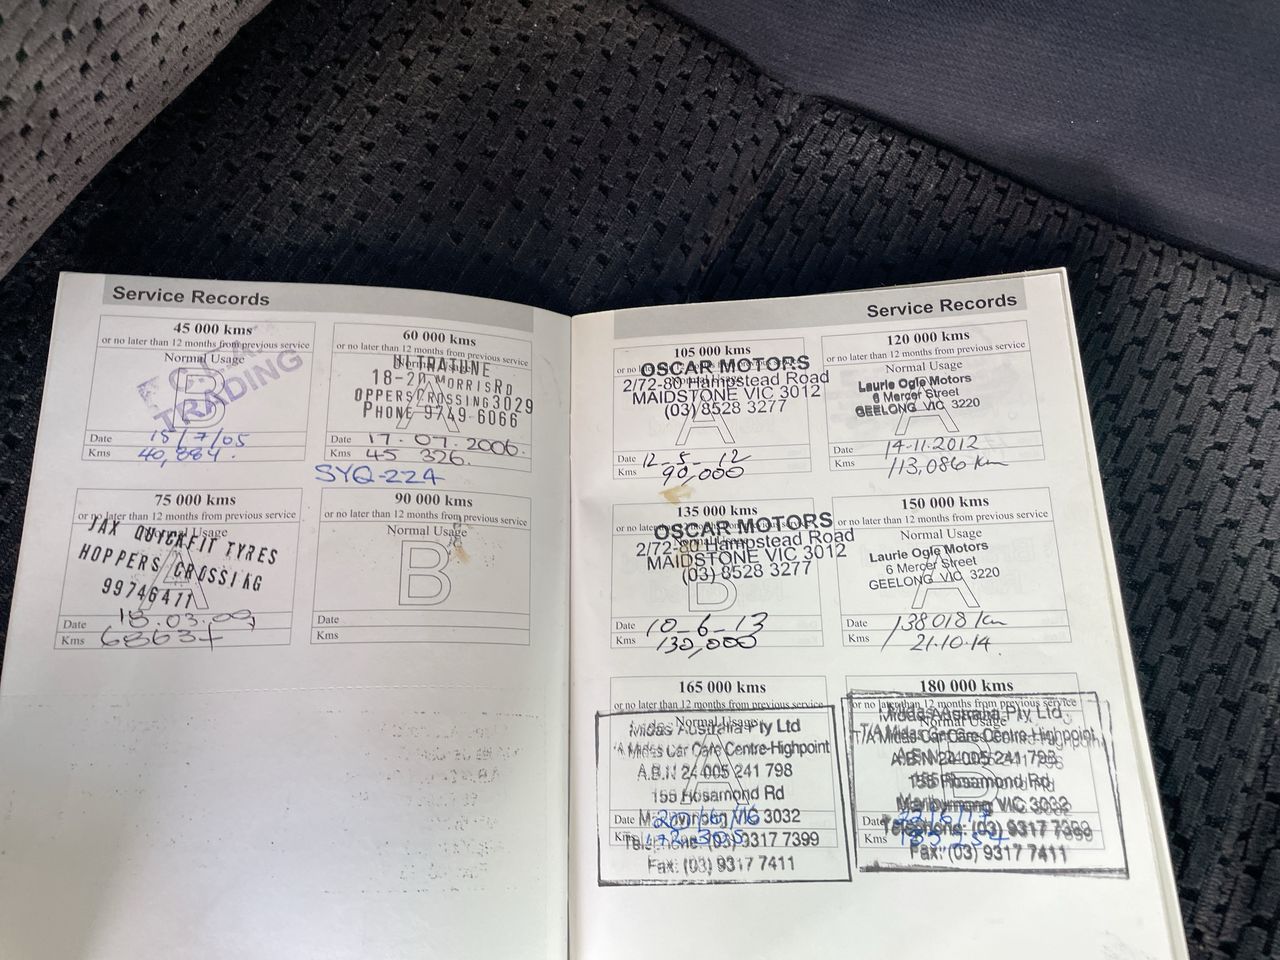 Service Records
45 000 kms
or no later than 12 months from previous service
Normal Usage
B
TRADING
Date 15/7/05
Kms 40,884.
60 000 kms
or no later than 12 months from previous service
NITRATUNE
18-22 MORRIS RD
OPPERS CROSSING 3029
PHONE 9749-6066
A
Date 17.07.2006.
Kms 45 326.
SYQ-224
75 000 kms
or no later than 12 months from previous service
Normal Usage
JAX QUICKFIT TYRES
HOPPERS CROSSING
99746411
A
Date 18.03.09
Kms
90 000 kms
or no later than 12 months from previous service
Normal Usage
B
Date
Kms
Service Records
105 000 kms
or no later than 12 months from previous service
OSCAR MOTORS
2/72-80 Hampstead Road
MAIDSTONE VIC 3012
(03) 8528 3277
A
Date 12-5-12
Kms 90,000
120 000 kms
or no later than 12 months from previous service
Normal Usage
Laurie Ogle Motors
6 Mercer Street
GEELONG VIC 3220
Date 14-11-2012
Kms 113,086 km
135 000 kms
or no later than 12 months from previous service
OSCAR MOTORS
2/72-80 Hampstead Road
MAIDSTONE VIC 3012
(03) 8528 3277
B
Date 10-6-13
Kms 130,000
150 000 kms
or no later than 12 months from previous service
Normal Usage
Laurie Ogle Motors
6 Mercer Street
GEELONG VIC 3220
A
Date 138018 km
Kms 21.10.14.
165 000 kms
or no later than 12 months from previous service
Normal Usage
Midas Australia Pty Ltd
Midas Car Care Centre-Highpoint
A.B.N 24 005 241 798
155 Rosamond Rd
VIC 3032
Date
Kms
Telephone: (03) 9317 7399
Fax: (03) 9317 7411
180 000 kms
or no later than 12 months from previous service
Normal Usage
Midas Australia Pty Ltd
T/A Midas Car Care Centre-Highpoint
A.B.N 24 005 241 798
155 Rosamond Rd
VIC 3032
Date
Kms
Telephone: (03) 9317 7399
Fax: (03) 9317 7411